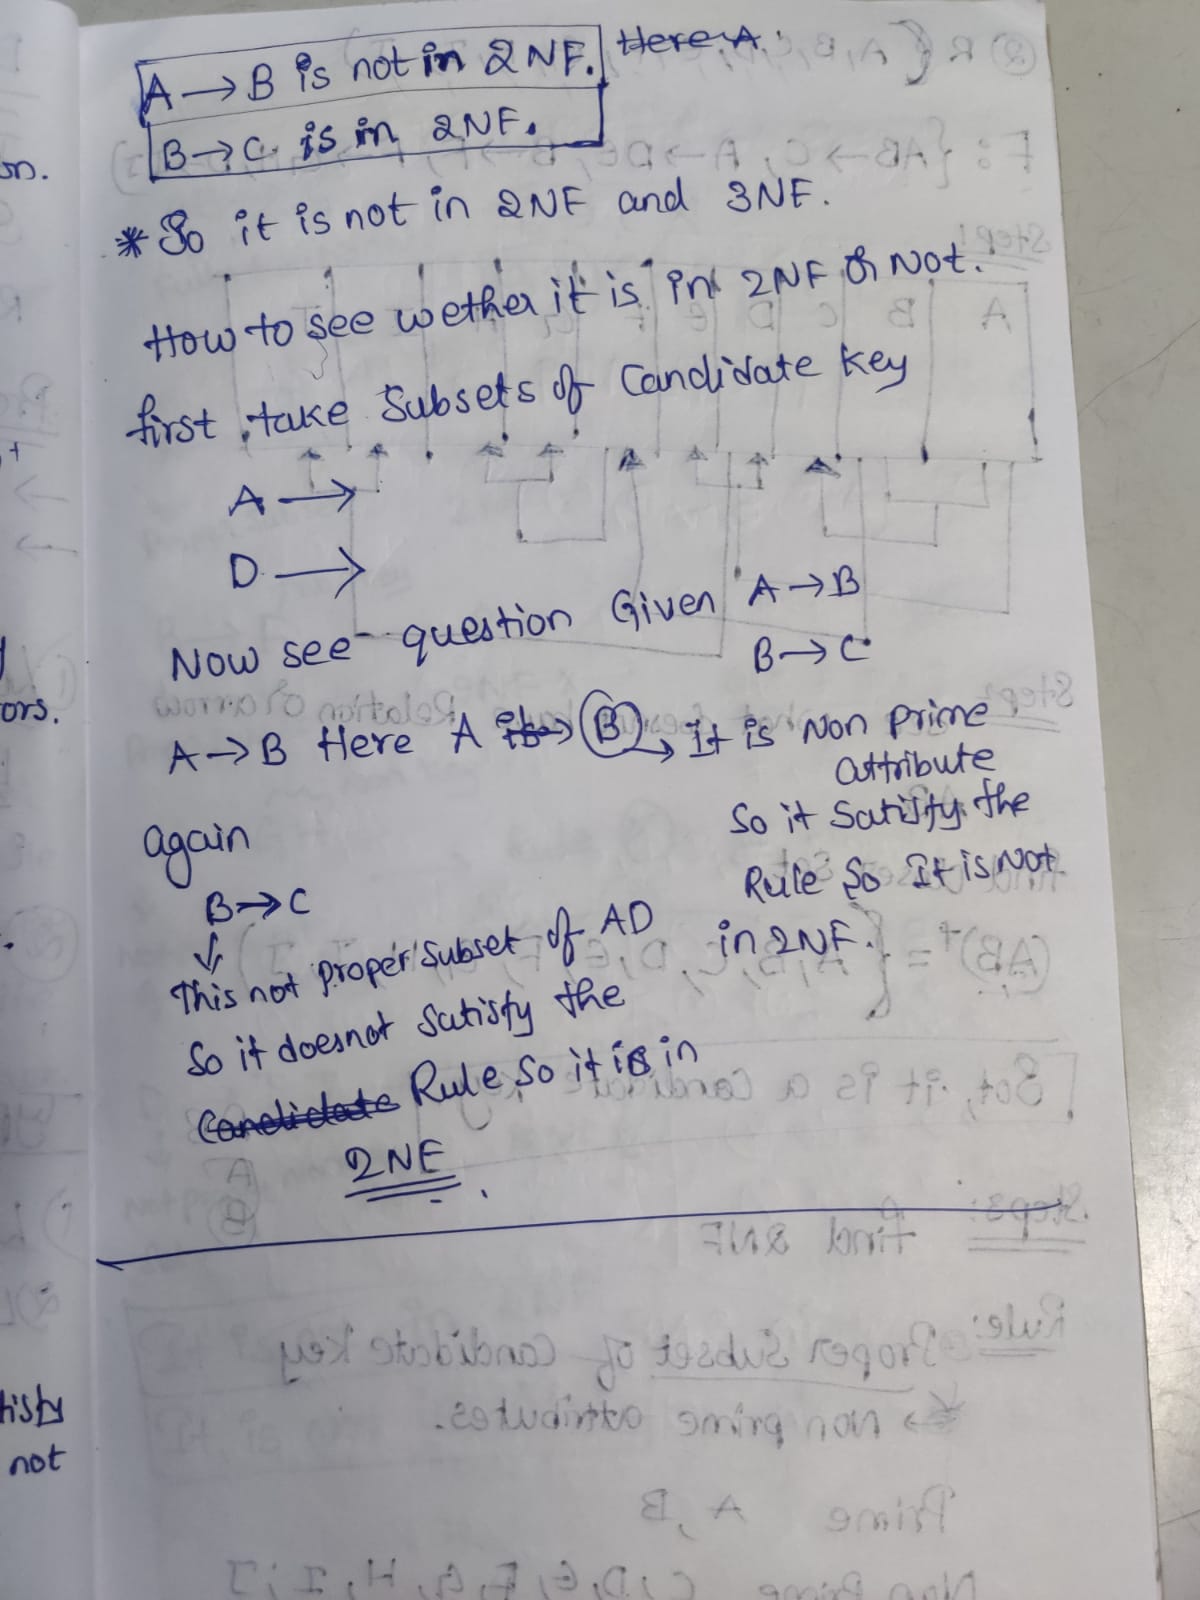 A → B is not in 2NF. Here A
B → C is in 2NF.
* So it is not in 2NF and 3NF.
How to see wether it is in 2NF or Not.
first take Subsets of Candidate Key
A →
D →
Now see question Given A → B
B → C
A → B Here A → B → It is Non prime
attribute
So it Satisfy the
Rule So It is Not
in 2NF.
again
B → C
↓
This not proper subset of AD
So it doesnot Satisfy the
Candidate Rule So it is in
2NF
on.
+
ors.
tisfy
not